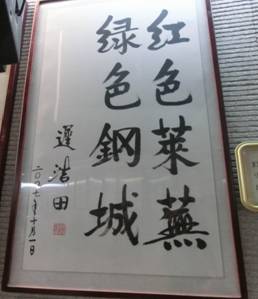 红色莱蕪
绿色鋼城
遲浩田
二〇〇七年十月一日